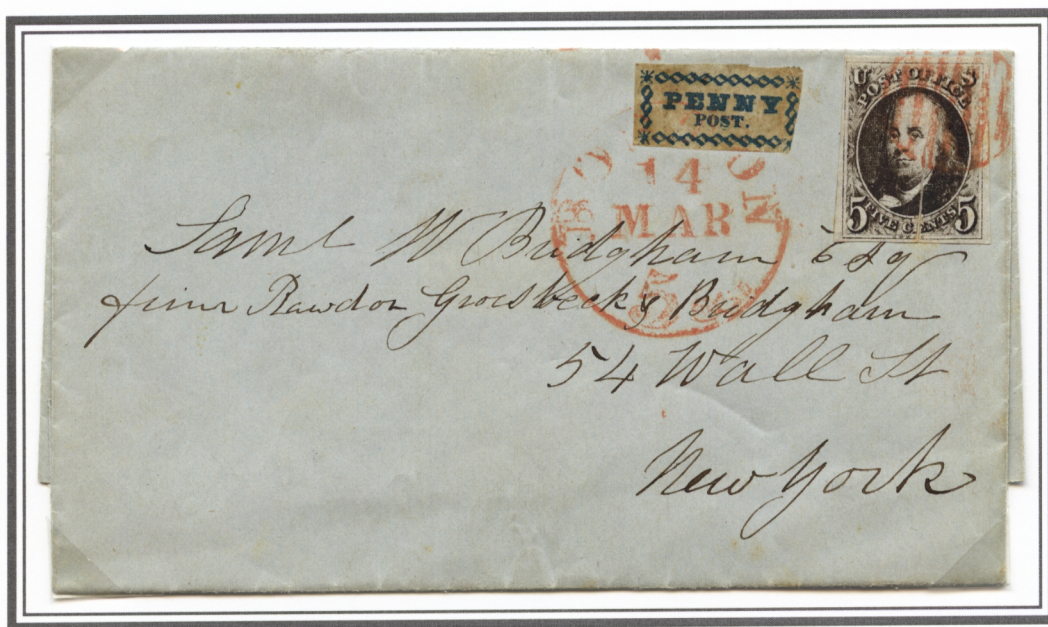 PENNY
POST.
U S
POST OFFICE
5 FIVE CENTS 5
14
MAR
5
Saml W Bridgham Esq
firm Rawdon Groesbeck & Bridgham
54 Wall St
New York